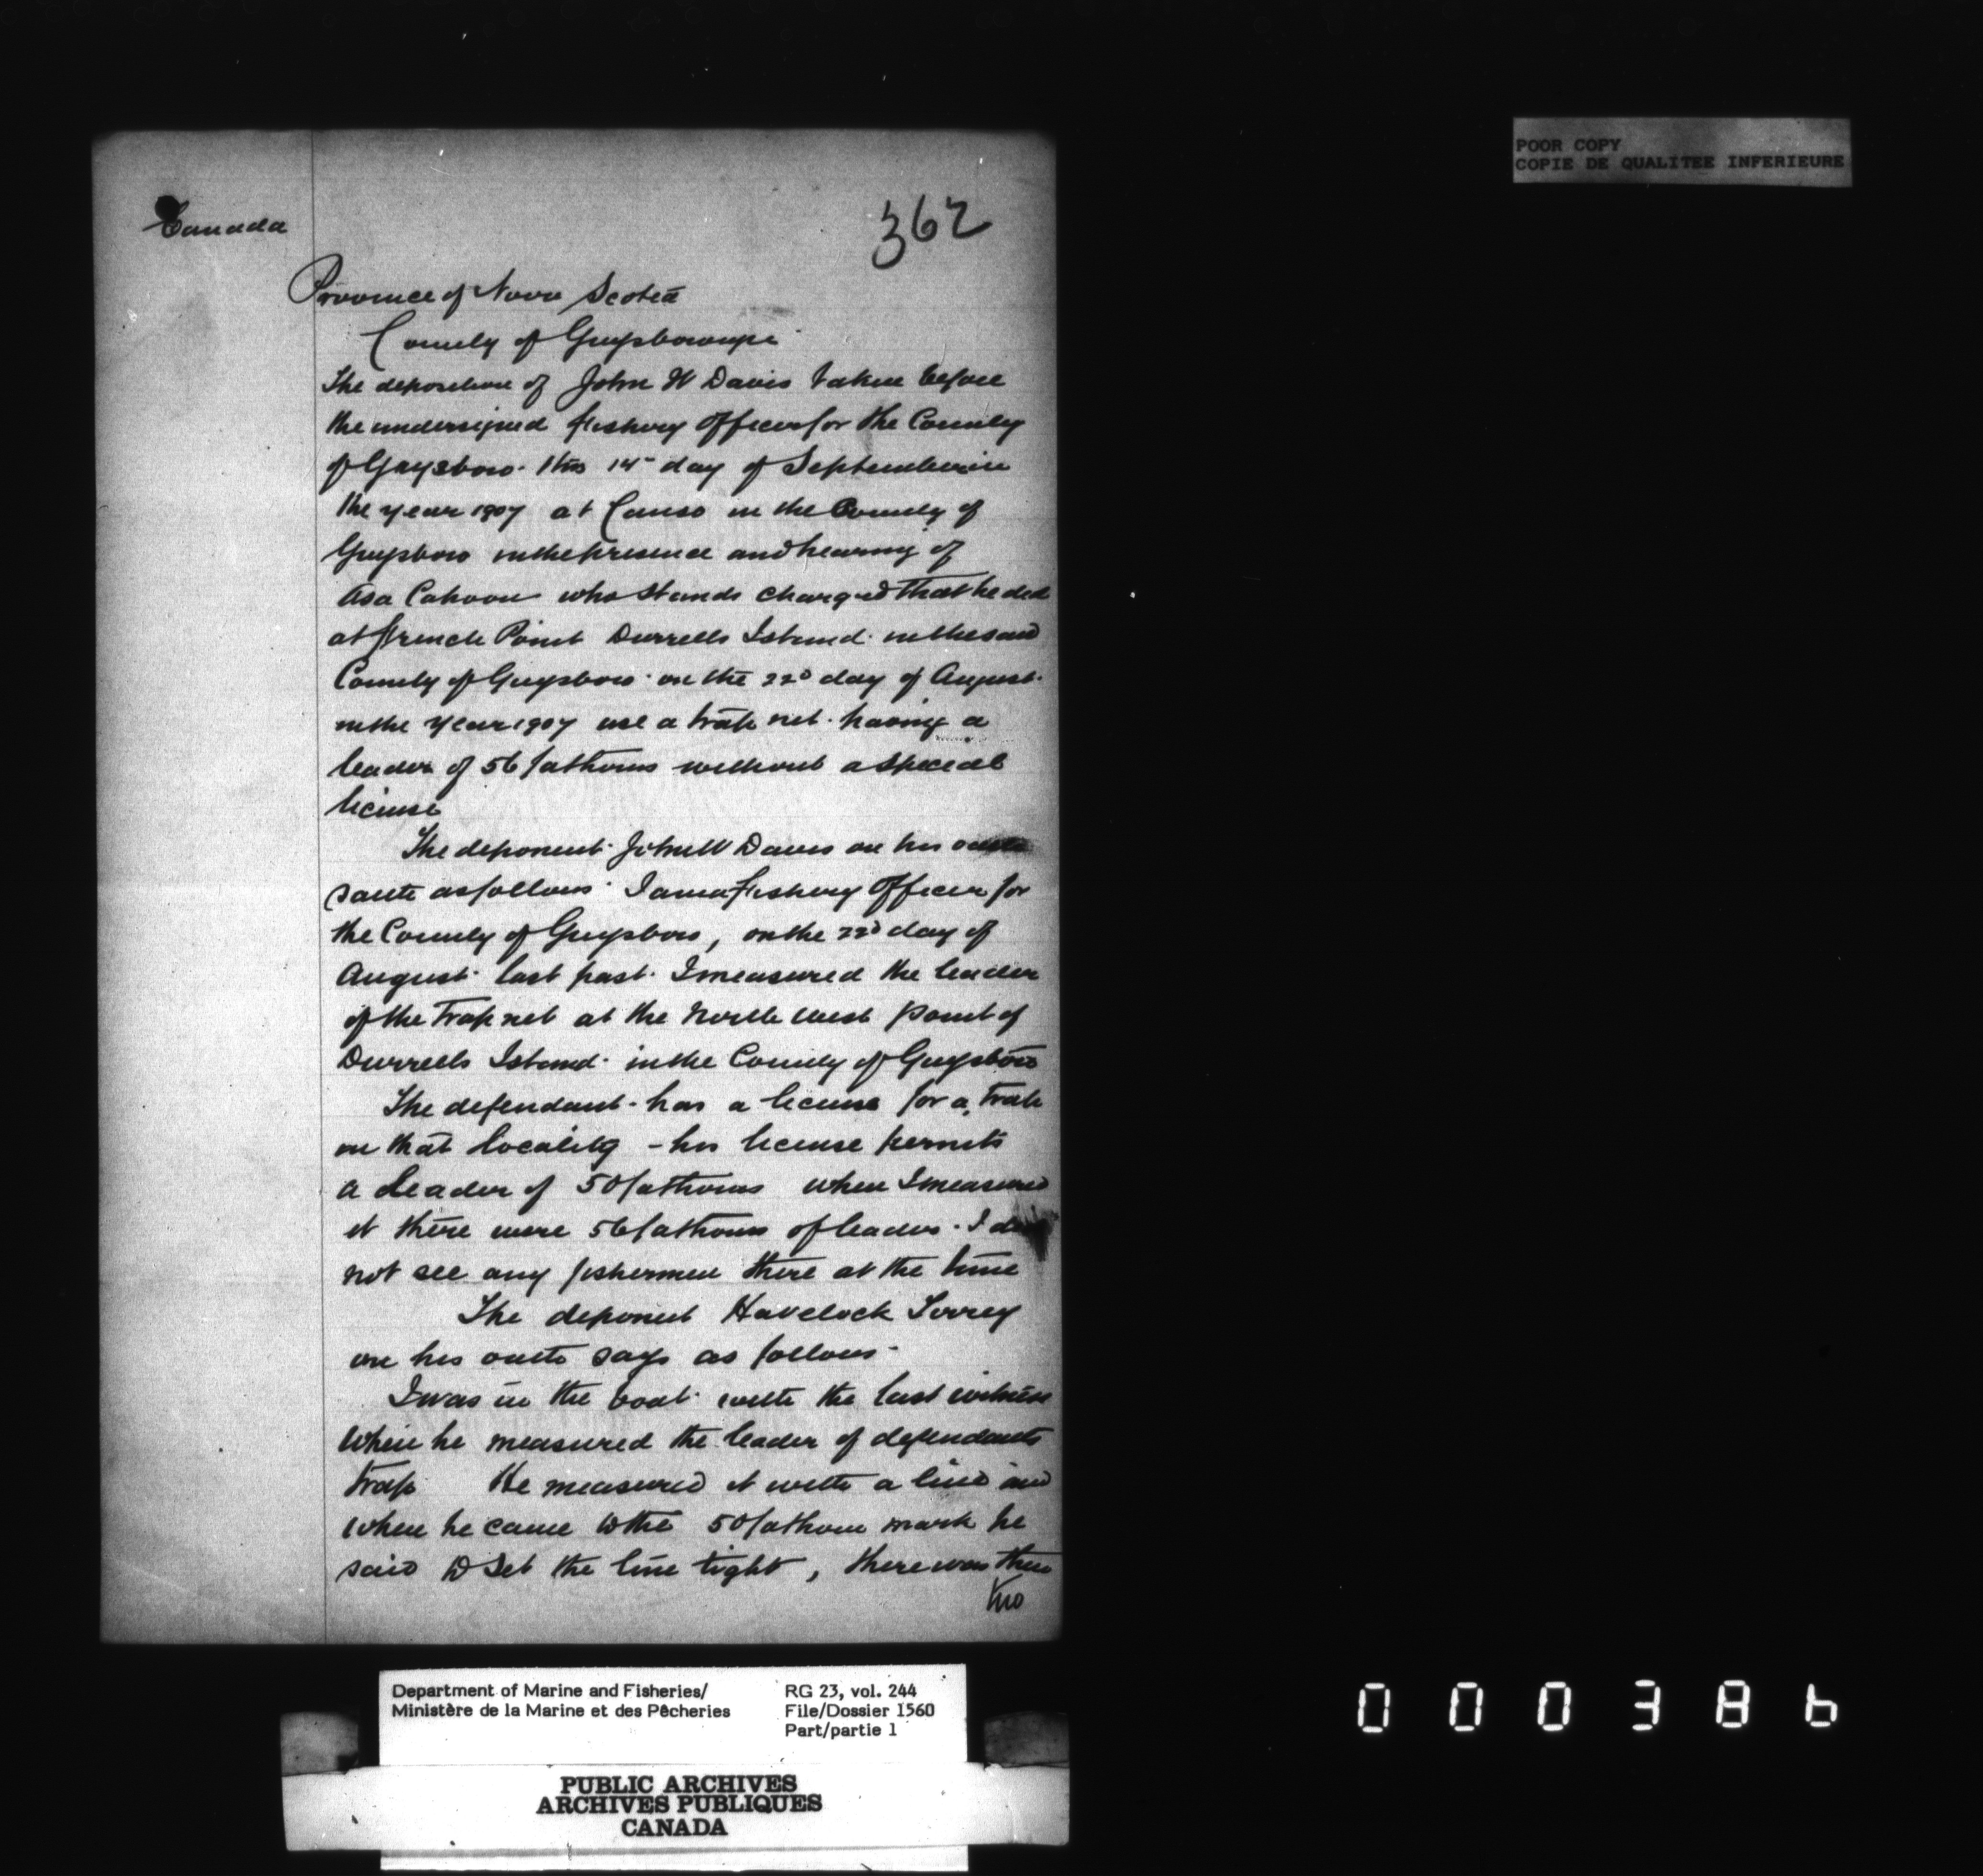 Canada
362
Province of Nova Scotia
County of Guysborough
The deposition of John W Davis taken before
the undersigned fishery officer for the County
of Guysboro. this 14th day of September in
the year 1907 at Canso in the County of
Guysboro in the presence and hearing of
Asa Cahoon who stands charged that he did
at French Point Durrells Island. in the said
County of Guysboro. on the 22d day of August.
in the year 1907 use a trap net. having a
leader of 56 fathoms without a special
license
The deponent. John W Davis on his oath
saith as follows. I am a fishery officer for
the County of Guysboro, on the 22d day of
August. last past. I measured the leader
of the Trap net at the North West point of
Durrells Island. in the County of Guysboro
The defendant. has a license for a trap
in that locality - his license permits
a leader of 50 fathoms when I measured
it there were 56 fathoms of leader. I did
not see any fishermen there at the time
The deponent Havelock Torrey
on his oath says as follows.
I was in the boat. with the last witness
when he measured the leader of defendants
trap He measured it with a line and
when he came to the 50 fathom mark he
said to set the line tight, there was then
POOR COPY
COPIE DE QUALITEE INFERIEURE
Department of Marine and Fisheries/
Ministère de la Marine et des Pêcheries
RG 23, vol. 244
File/Dossier 1560
Part/partie 1
PUBLIC ARCHIVES
ARCHIVES PUBLIQUES
CANADA
000386